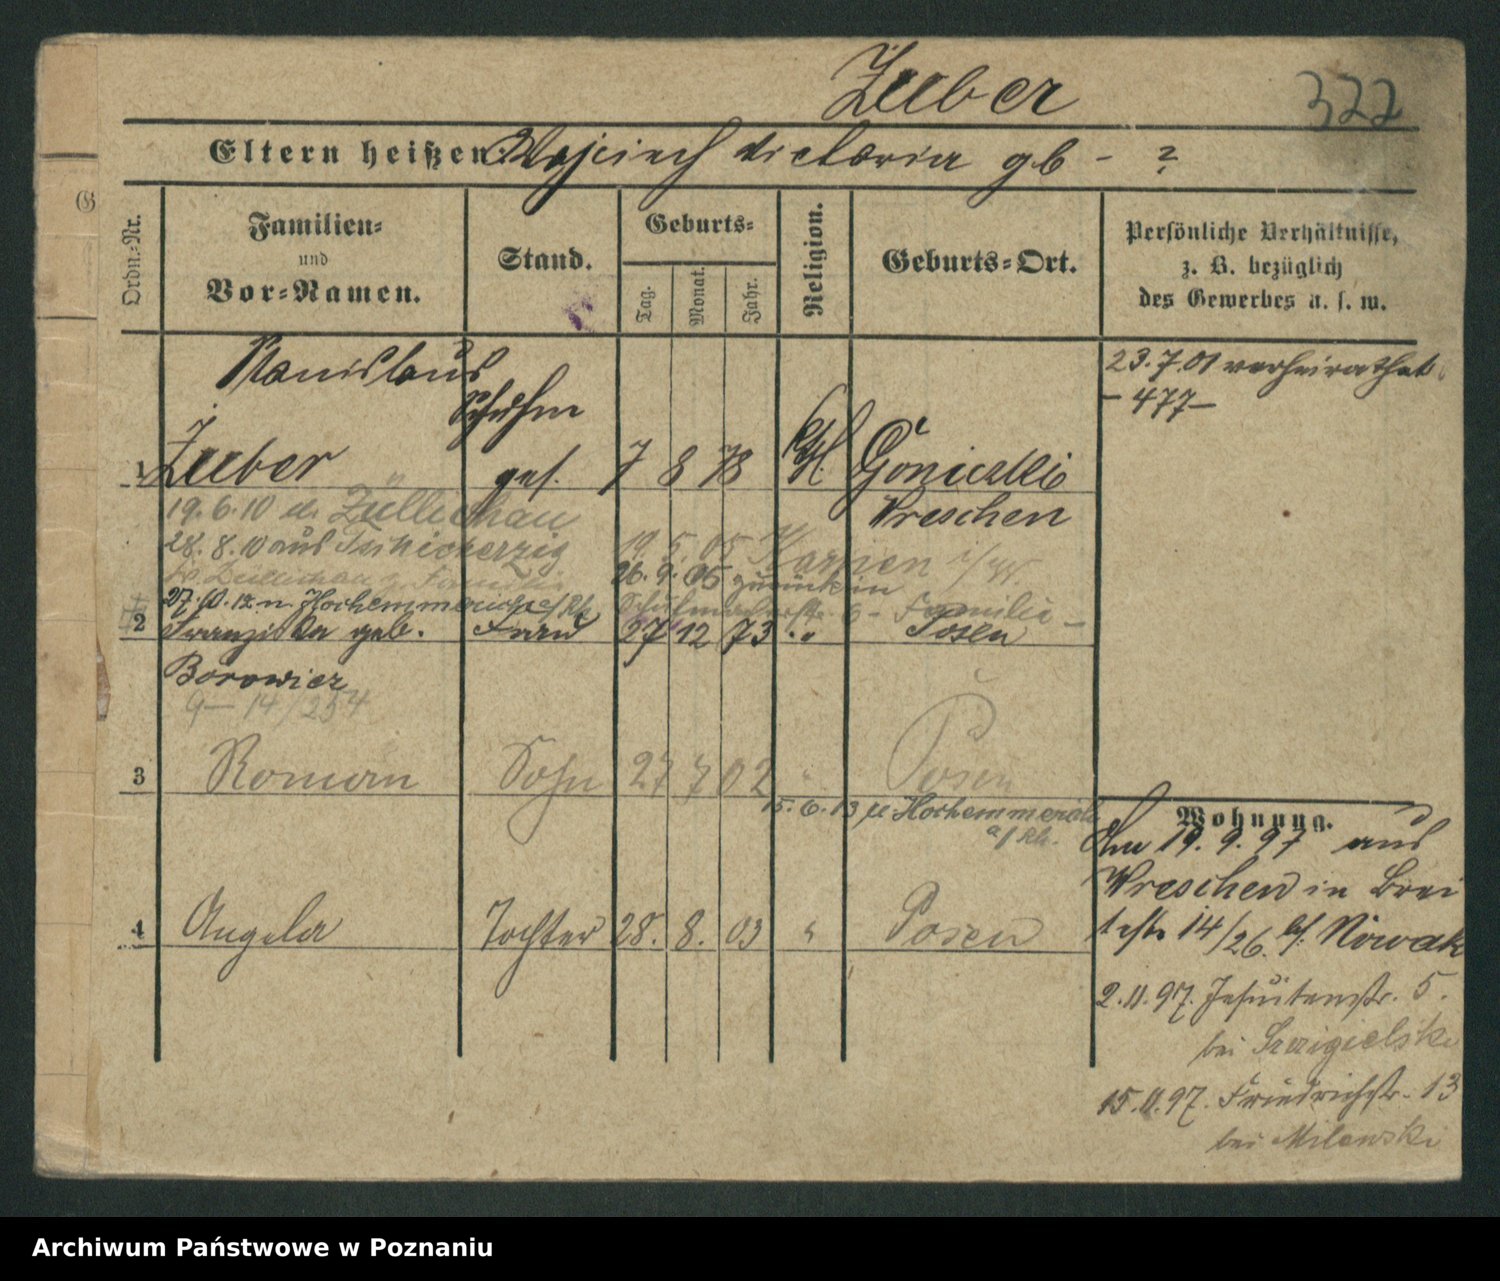 Zuber
322
Eltern heißen: Wojciech Victoria gb - ?
Ordn.-Nr.
Familien-
und
Vor-Namen.
Stand.
Geburts-
Tag.
Monat.
Jahr.
Religion.
Geburts-Ort.
Persönliche Verhältnisse,
z. B. bezüglich
des Gewerbes u. s. w.
Stanislaus
Schuhm
23.7.01 verheirathet
- 477 -
1 Zuber ges. 7 8 78 kth
Wreschen
19.6.10 n. Züllichau
28.8.10 aus Tschicherzig
19.5.05
26.9.05 zurück in
Hochemmerich a/Rh.
Familie -
2 Franziska geb. Frau 27 12 73 " Posen
Borowicz
9 - 14/254
3 Roman Sohn 27 7 02 " Posen
15.6.13 n Hochemmerich
a/Rh.
Wohnung.
Am 19.9.97 aus
Wreschen in Brei
testr 14/26. bf. Nowak
4 Angela Tochter 28. 8. 03 " Posen
2.11.97. Jesuitenstr. 5.
bei
15.11.97. Friedrichstr. 13
bei Milewski
G
Archiwum Państwowe w Poznaniu